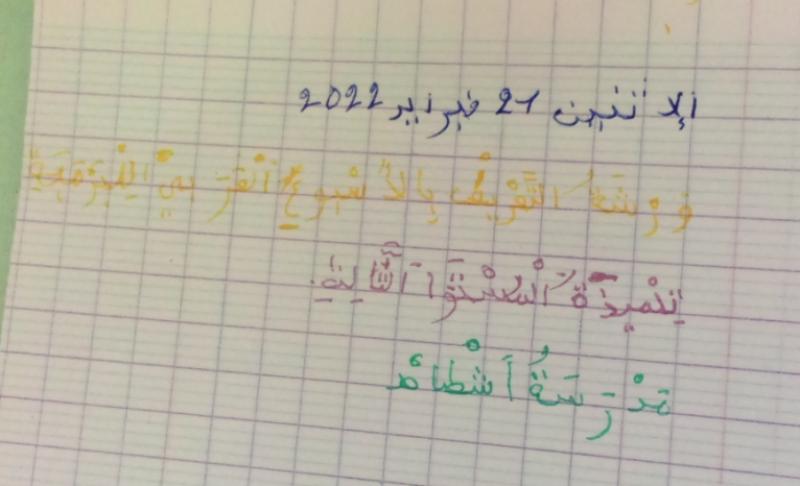 الإثنين 21 فبراير 2022
وَرْشَةُ التَّعْرِيفْ بِالْأُسْبوعِ اَلْعَرَبيْ لِلْبَرْمَجَةِ
تِلْمِيذَةُ اَلْمُسْتَوَا اَلثَّالِثَةِ.
مَدْرَسَةُ اَشْطاطْ